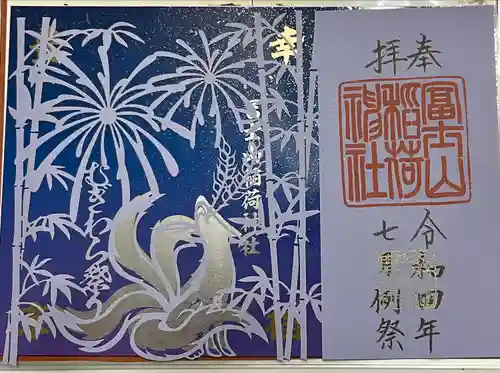 奉拝
冨士山
稲荷
神社
令和四年
七月例祭
冨士山稲荷神社
むぎわら祭り
幸